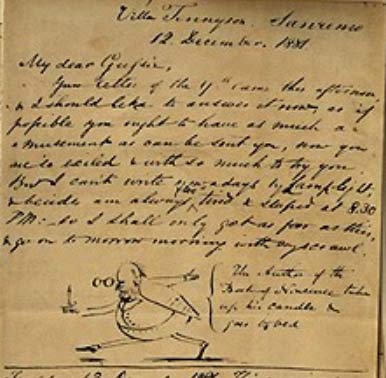 Villa Tennyson. Sanremo
12. December. 1881
My dear Gussie,
Your letter of the 9th came this afternoon
& I should like to answer it now, as if
possible you ought to have as much a-
musement as can be sent you, now you
are so exiled & with so much to try you.
But I can't write nowadays by Lamplight,
& besides am always tired & sleepy at 8.30
PM: so I shall only get as far as this,
& go on tomorrow morning with my scrawl.
The Author of the
Book of Nonsense takes
up his candle &
goes to bed